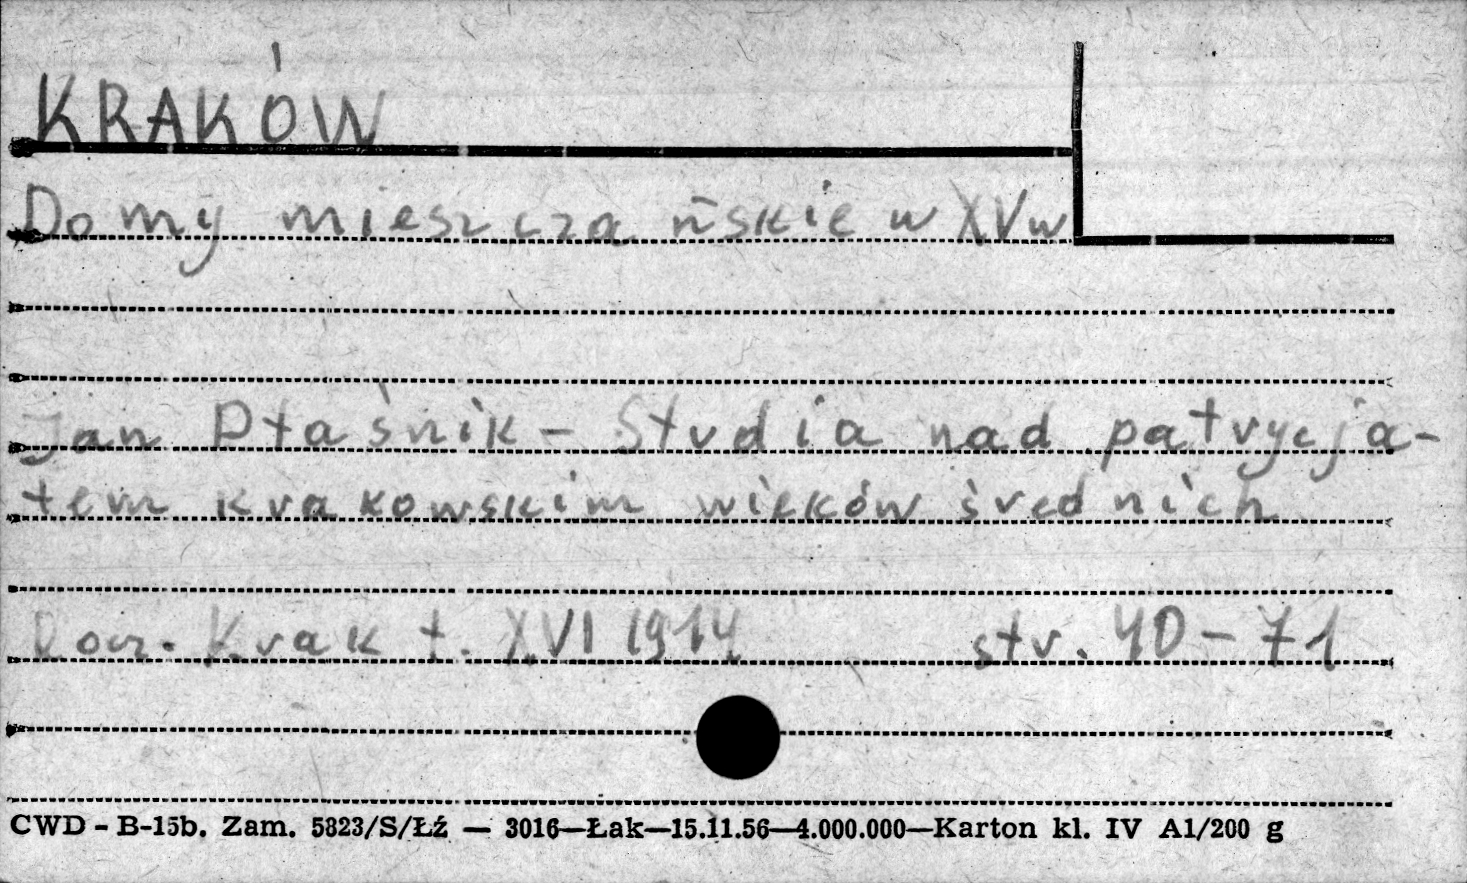 KRAKÓW
Domy mieszczańskie w XV w
Jan Ptaśnik - Studia nad patrycja-
tem krakowskim wieków średnich
Rocz. Krak t. XVI 1914 str. 40-71
CWD - B-15b. Zam. 5823/S/Łź — 3016—Łak—15.11.56—4.000.000—Karton kl. IV A1/200 g